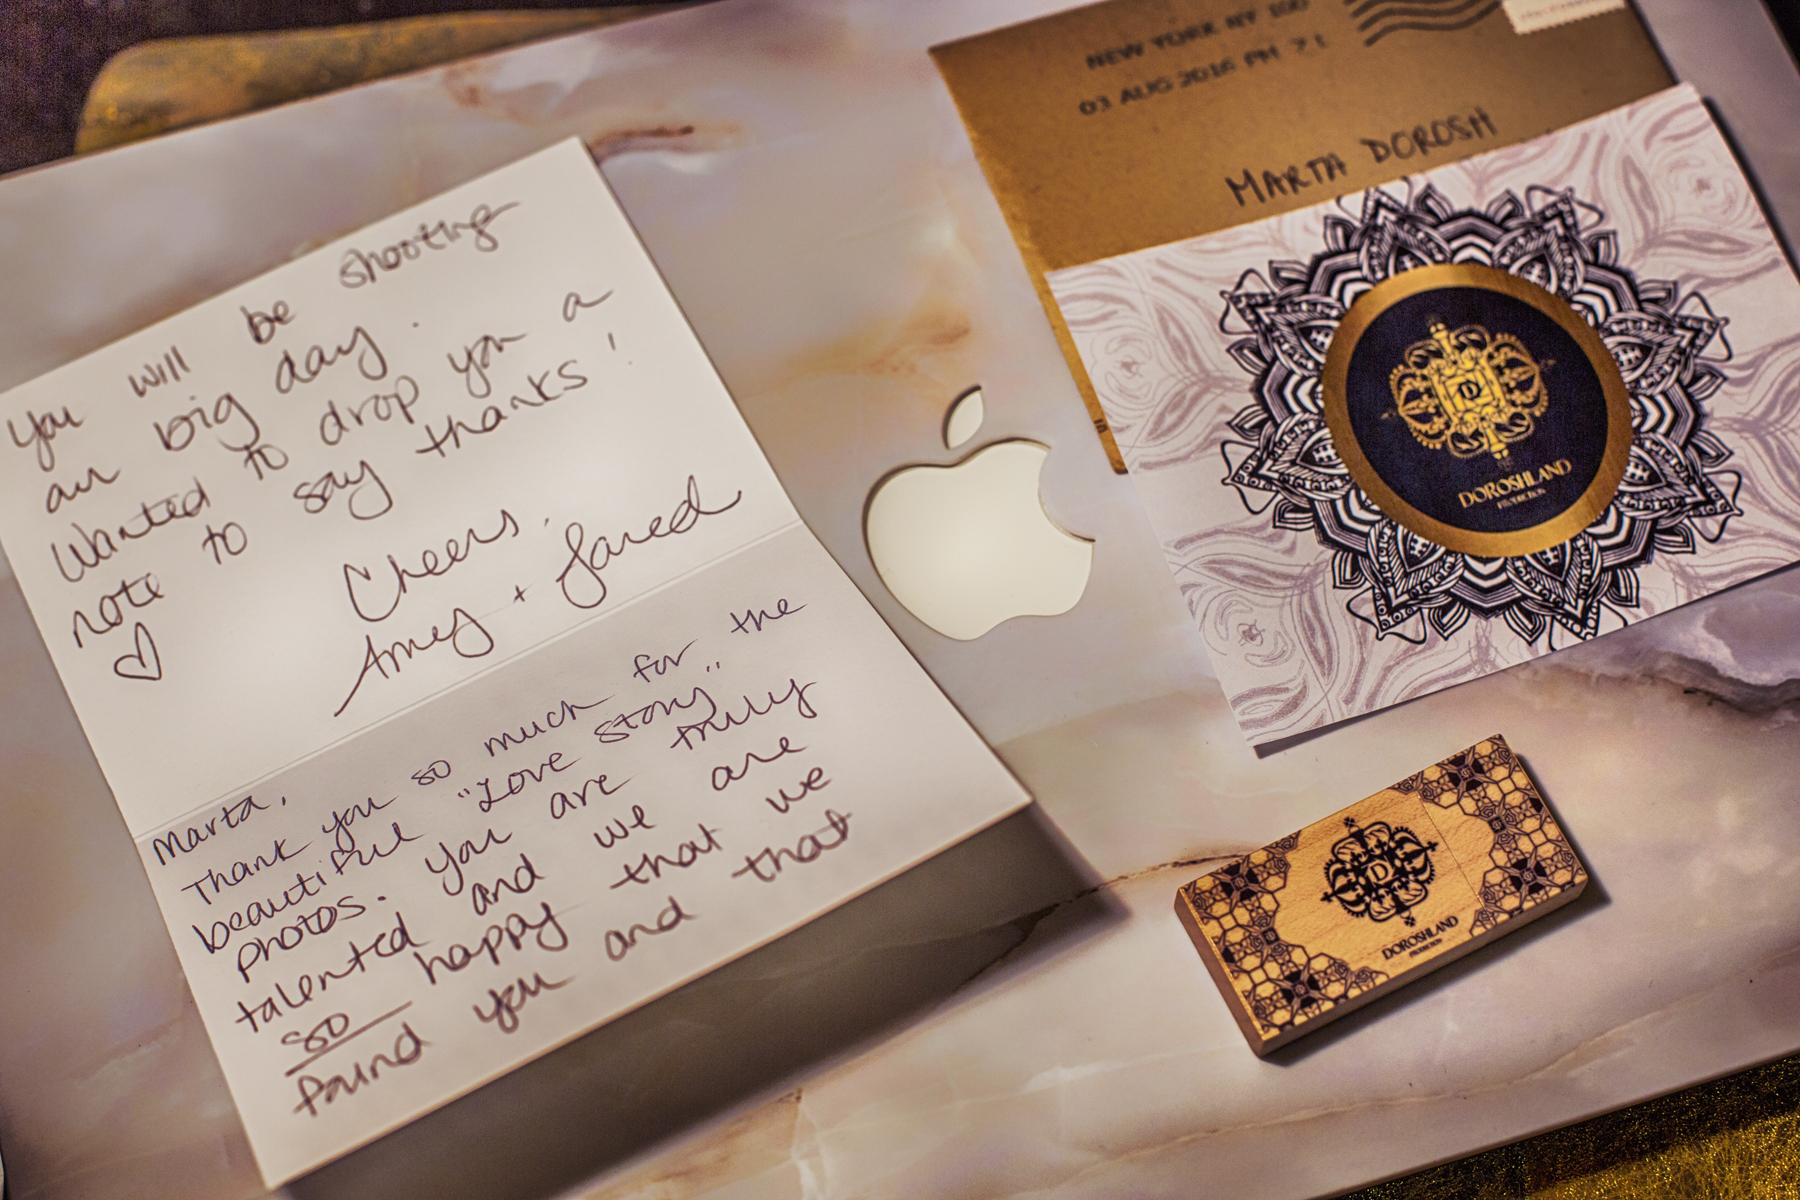 you will be shooting
our big day.
Wanted to drop you a
note to say thanks!
Cheers,
Amey + Jared
Marta,
Thank you so much for the
beautiful "Love story" 
photos. You are truly
talented and we are
so happy that we
found you and that
NEW YORK NY 100
03 AUG 2016 PM 7 L
MARTA DOROSH
D
DOROSHLAND
PRODUCTION
D
DOROSHLAND
PRODUCTION